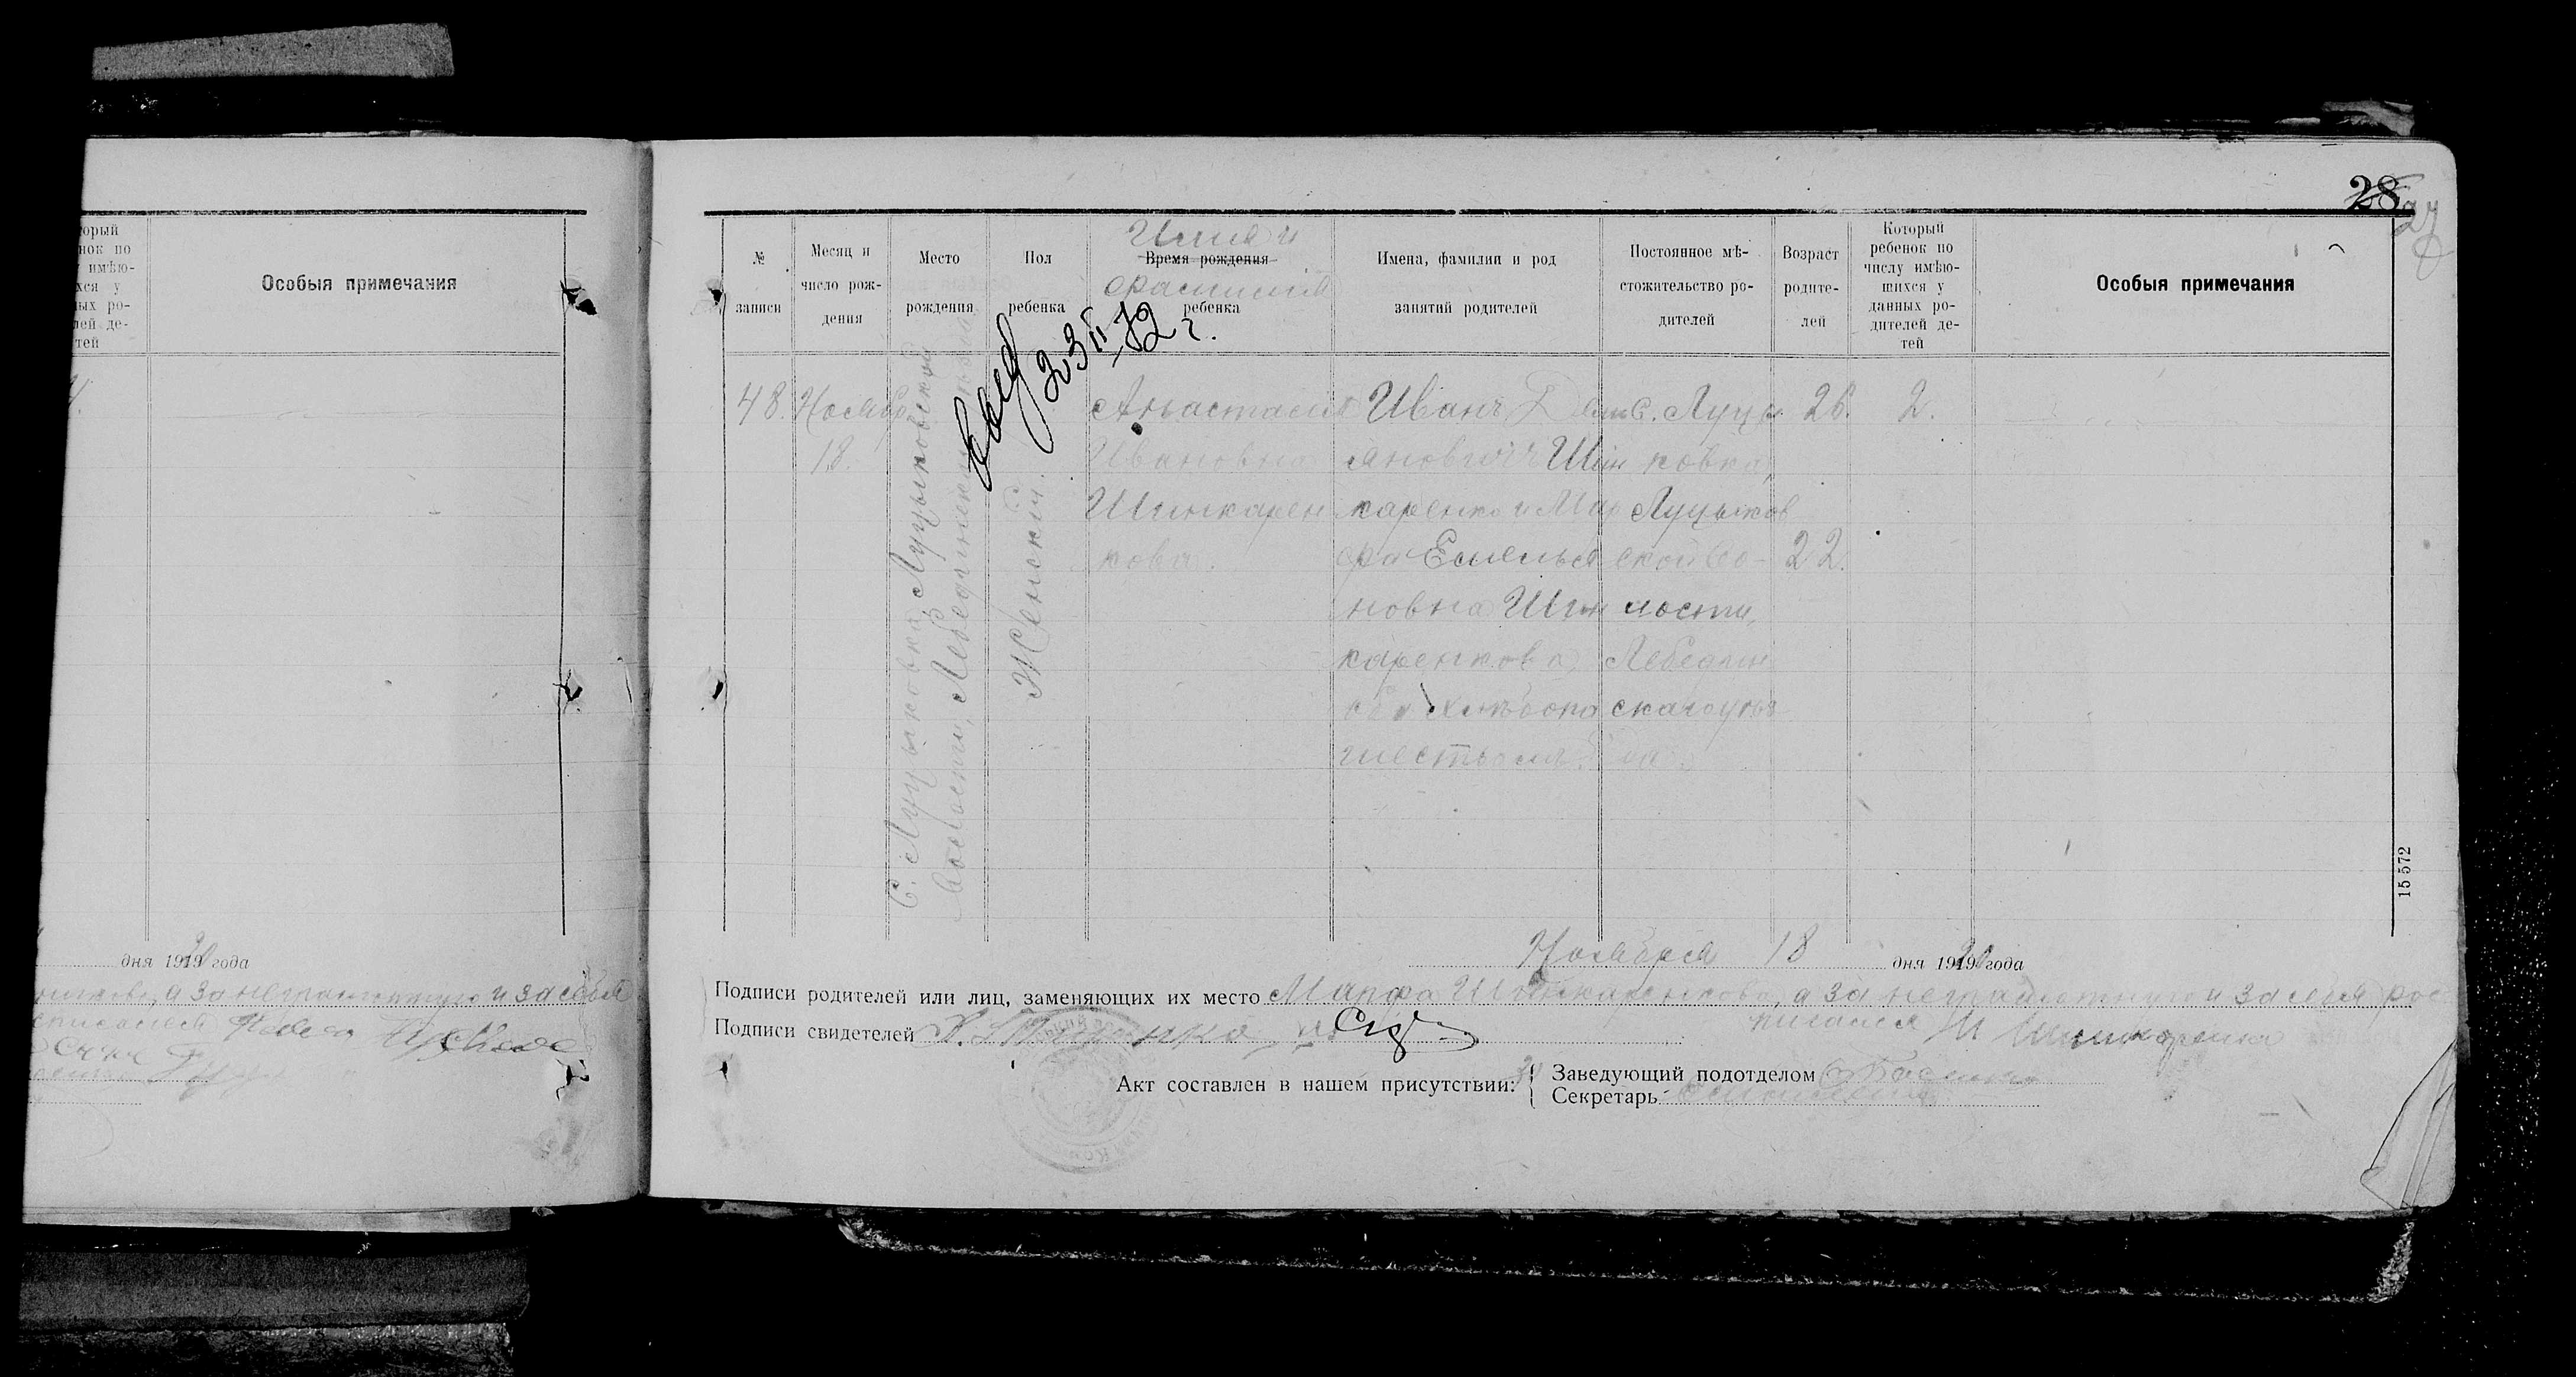 28
27
орый
нок по
имѣю-
хся у
ных ро-
лей де-
тей
Особыя примечания
дня 1919 года
а за неграмотную и за себя
№
записи
Месяц и
число рож-
дения
Место
рождения
Пол
ребенка
Имя и
Время рождения
фамилия
ребенка
Имена, фамилии и род
занятий родителей
Постоянное мѣ-
стожительство ро-
дителей
Возраст
родите-
лей
Который
ребенок по
числу имѣю-
шихся у
данных ро-
дителей де-
тей
Особыя примечания
23 II 72 г.
48.
Ноябр
18.
С. Луцыковка, Луцыковской
волости, Лебединск
Женский.
Анастасия
Ивановна
Шинкарен
кова.
Иван Демь
янович Шин
каренко и Мар
фа Емелья
новна Шин
каренкова
хлѣбопа
шеством.
С. Луцы
ковка,
Луцыков
ской во-
лости,
Лебедин
скаго уѣз
да.
26.
22.
2.
15 572
Ноября 18 дня 1919 года
Подписи родителей или лиц, заменяющих их место Марфа Шинкаренкова, а за неграмотную и за себя рос
писался И Шинкаренко
Подписи свидетелей
Акт составлен в нашем присутствии:
Заведующий подотделом
Секретарь